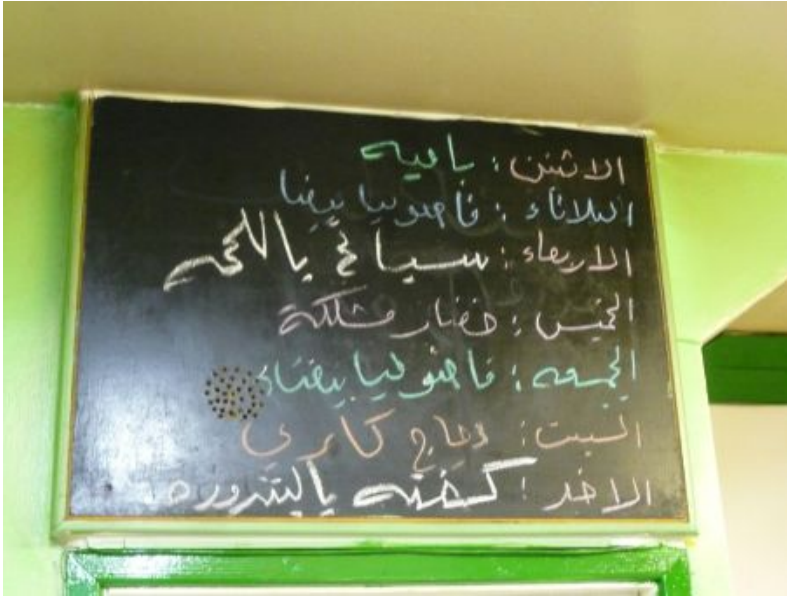 الاثنين : باميه
الثلاثاء : فاصوليا بيضا
الاربعاء : سبانخ باللحمه
الخميس : خضار مشكلة
الجمعه : فاصوليا بيضاء
السبت : دجاج كاري
الاحد : كفته بالبندوره